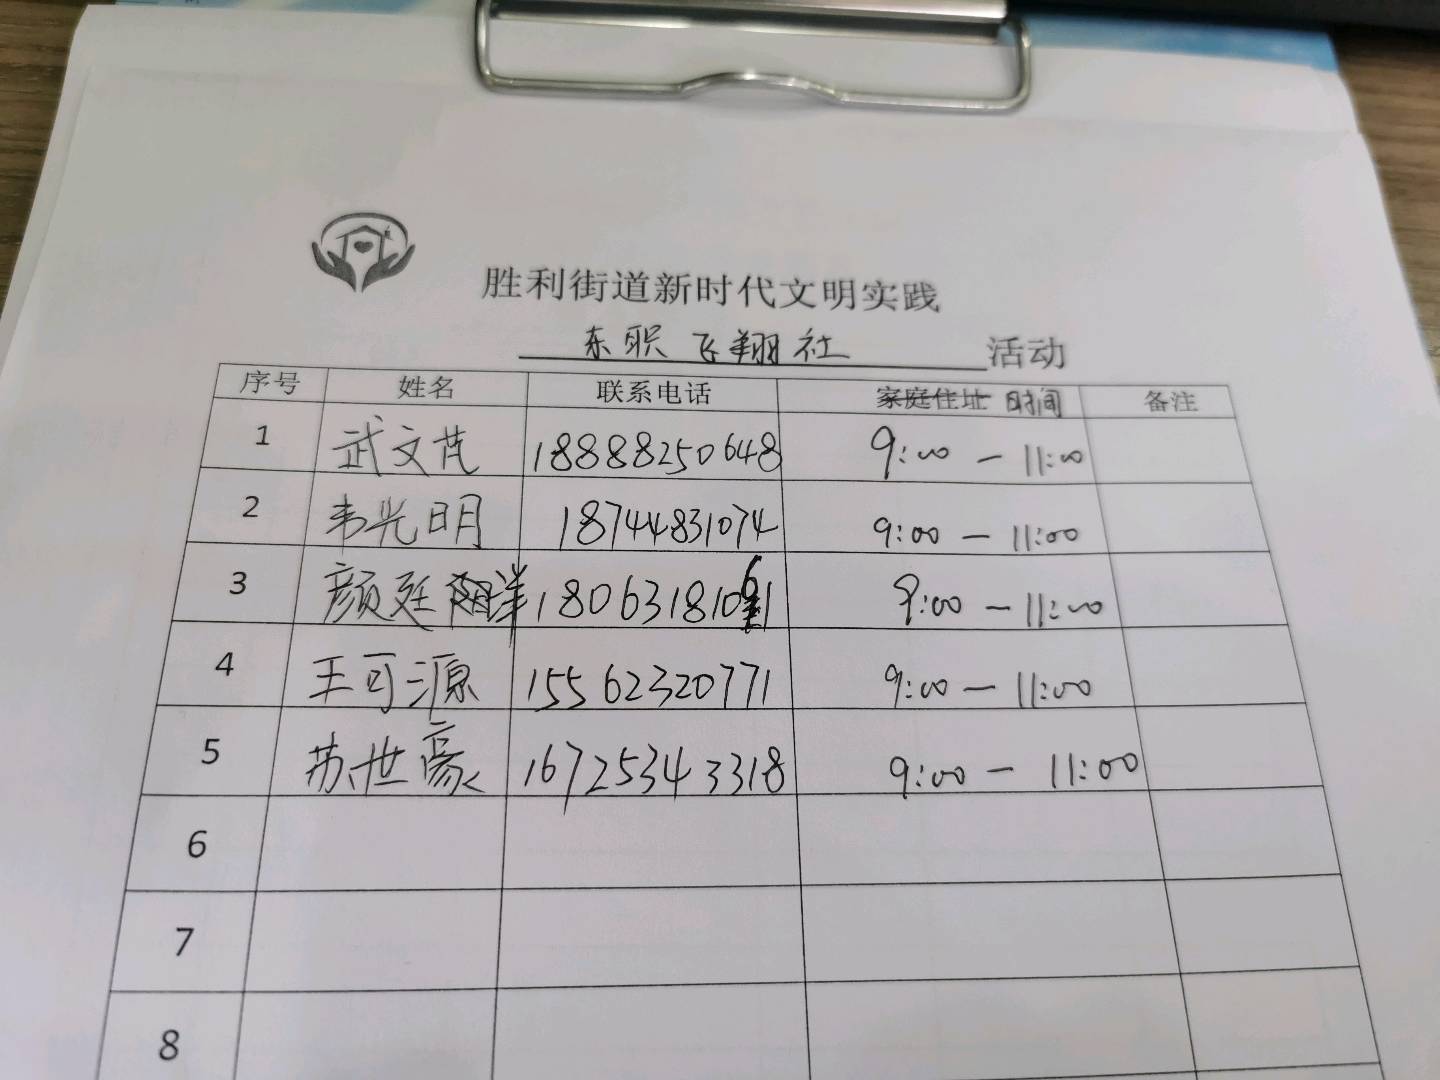 胜利街道新时代文明实践
东职飞翔社 活动
序号 姓名 联系电话 时间 备注
1 武文芃 18888250648 9:00 — 11:00
2 韦光明 18744831074 9:00 — 11:00
3 颜廷洋 180631810 9:00 — 11:00
4 王可源 15562320771 9:00 — 11:00
5 苏世豪 16725343318 9:00 — 11:00
6
7
8